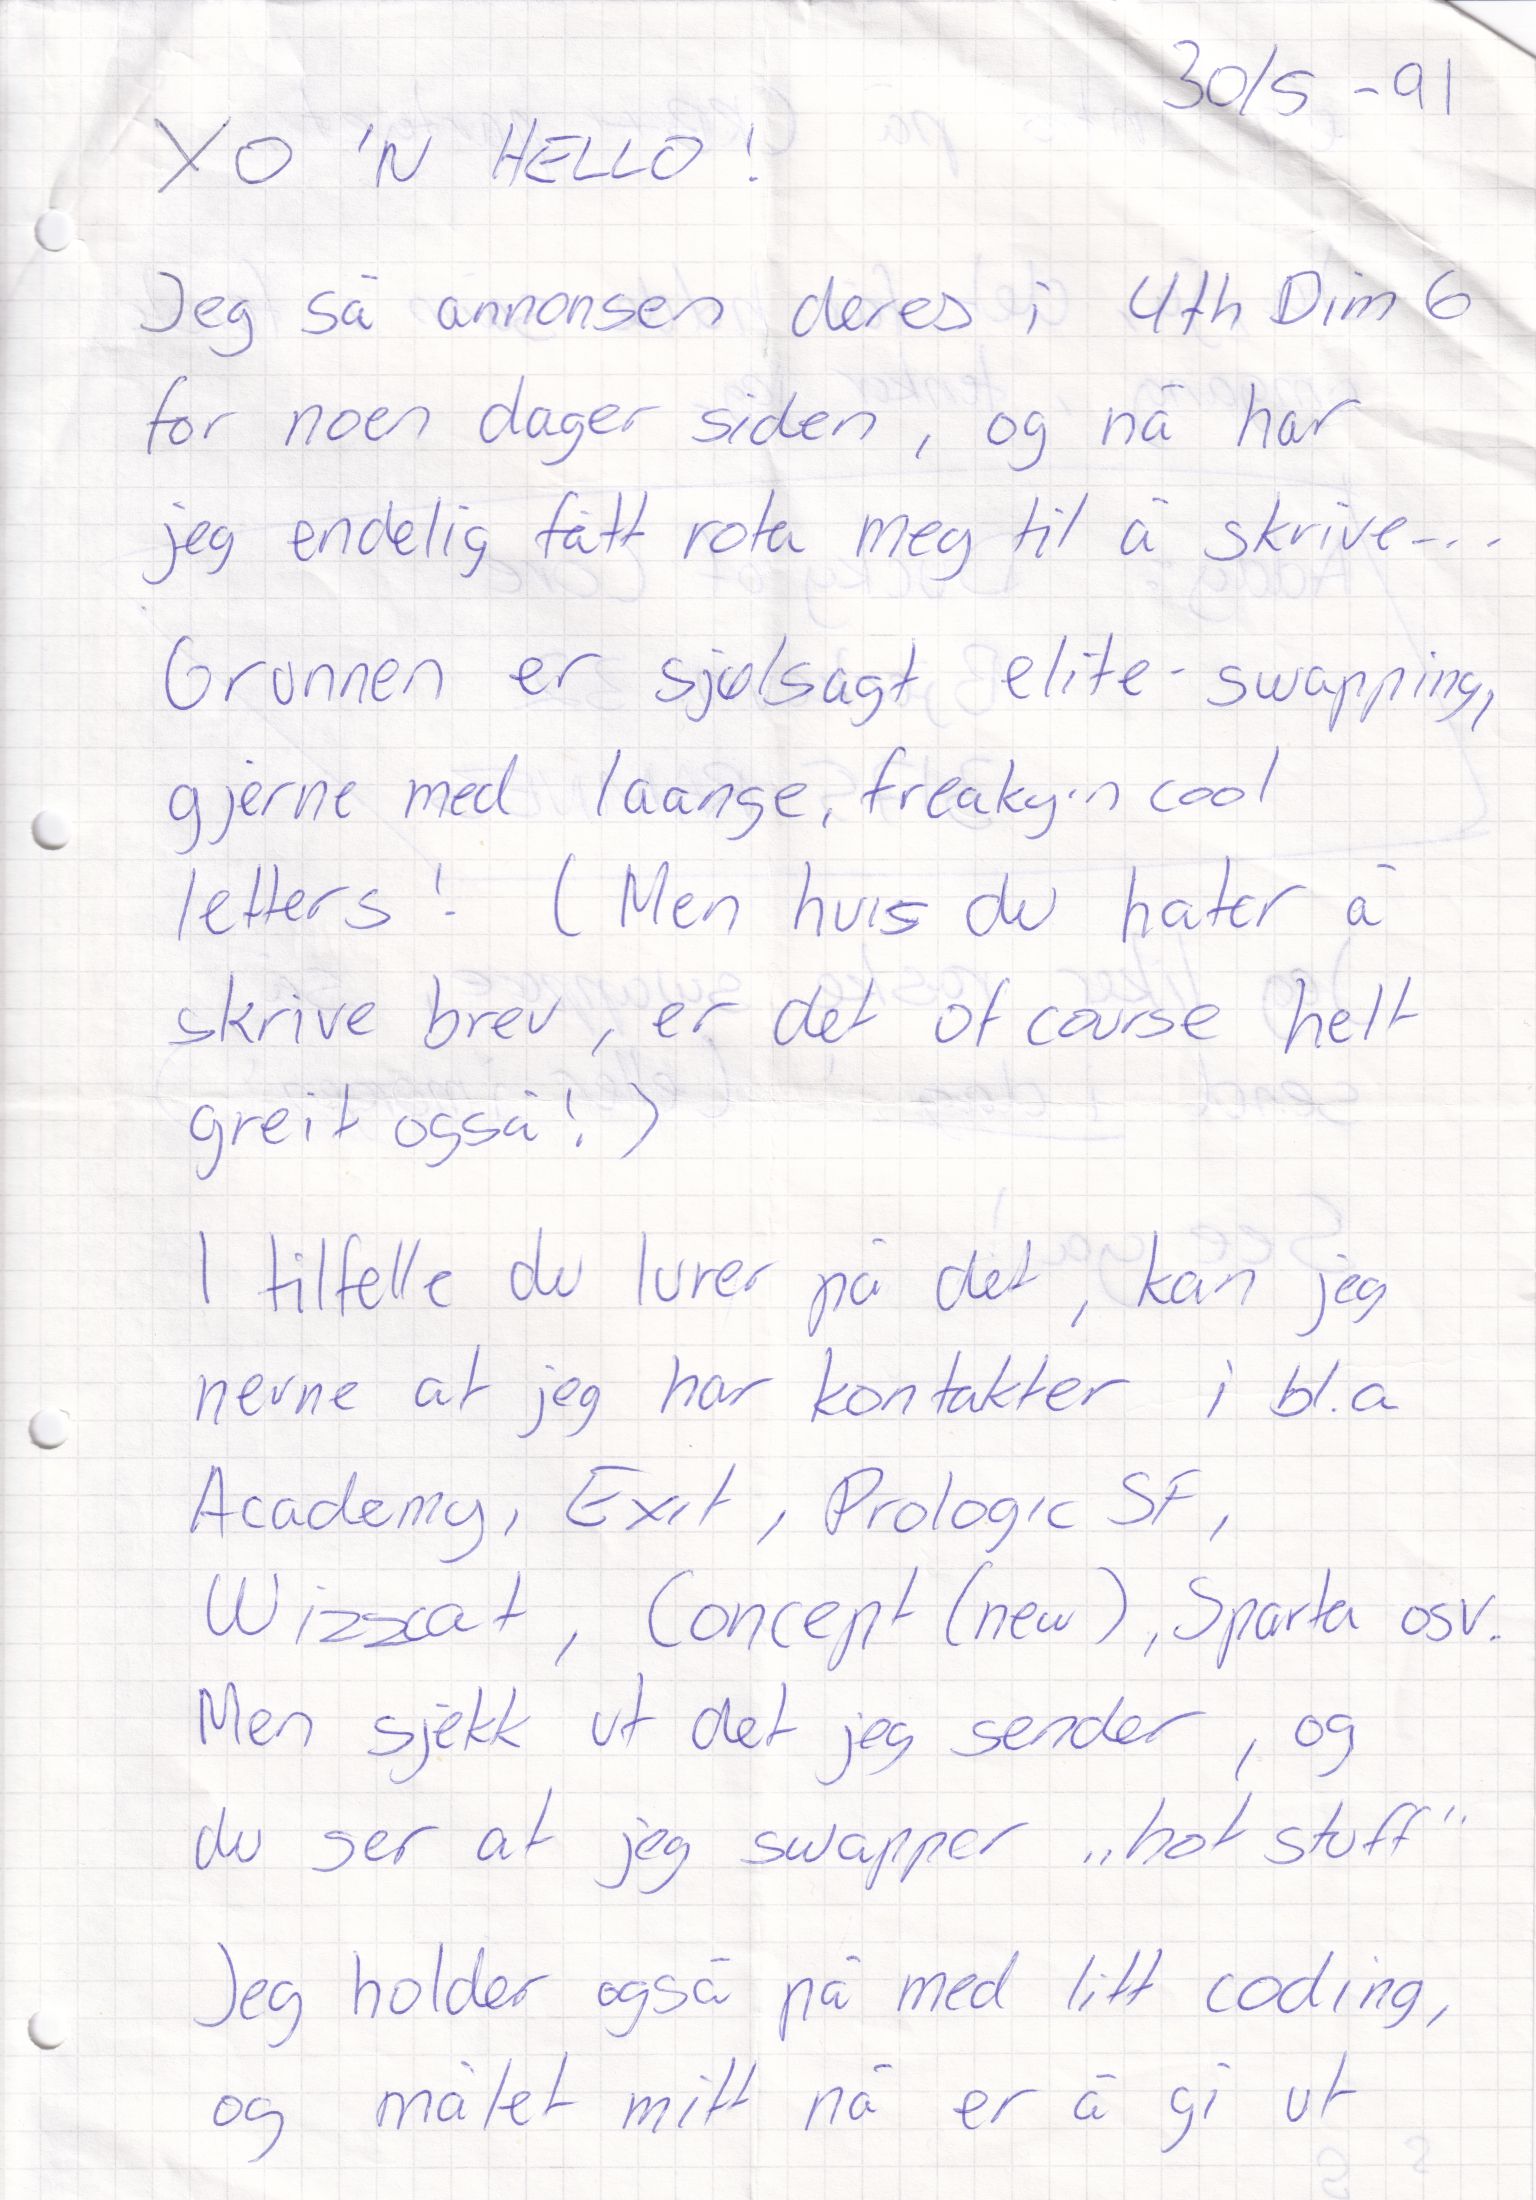 30/5 -91
YO 'N HELLO!
Jeg så annonsen deres i 4th Dim 6
for noen dager siden, og nå har
jeg endelig fått rota meg til å skrive...
Grunnen er sjølsagt elite-swapping,
gjerne med laange, freaky'n cool
letters! (Men hvis du hater å
skrive brev, er det of course helt
greit også!)
I tilfelle du lurer på det, kan jeg
nevne at jeg har kontakter i bl.a
Academy, Exit, Prologic SF,
Wizzcat, Concept (new), Sparta osv.
Men sjekk ut det jeg sender, og
du ser at jeg swapper „hot stuff"
Jeg holder også på med litt coding,
og målet mitt nå er å gi ut